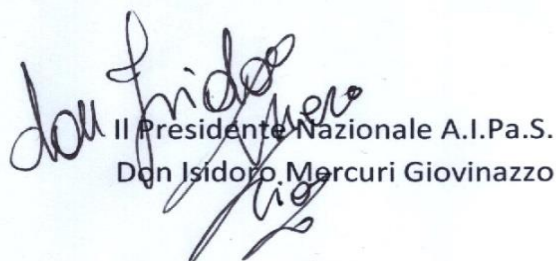 don Isidoro
Il Presidente Nazionale A.I.Pa.S.
Don Isidoro Mercuri Giovinazzo